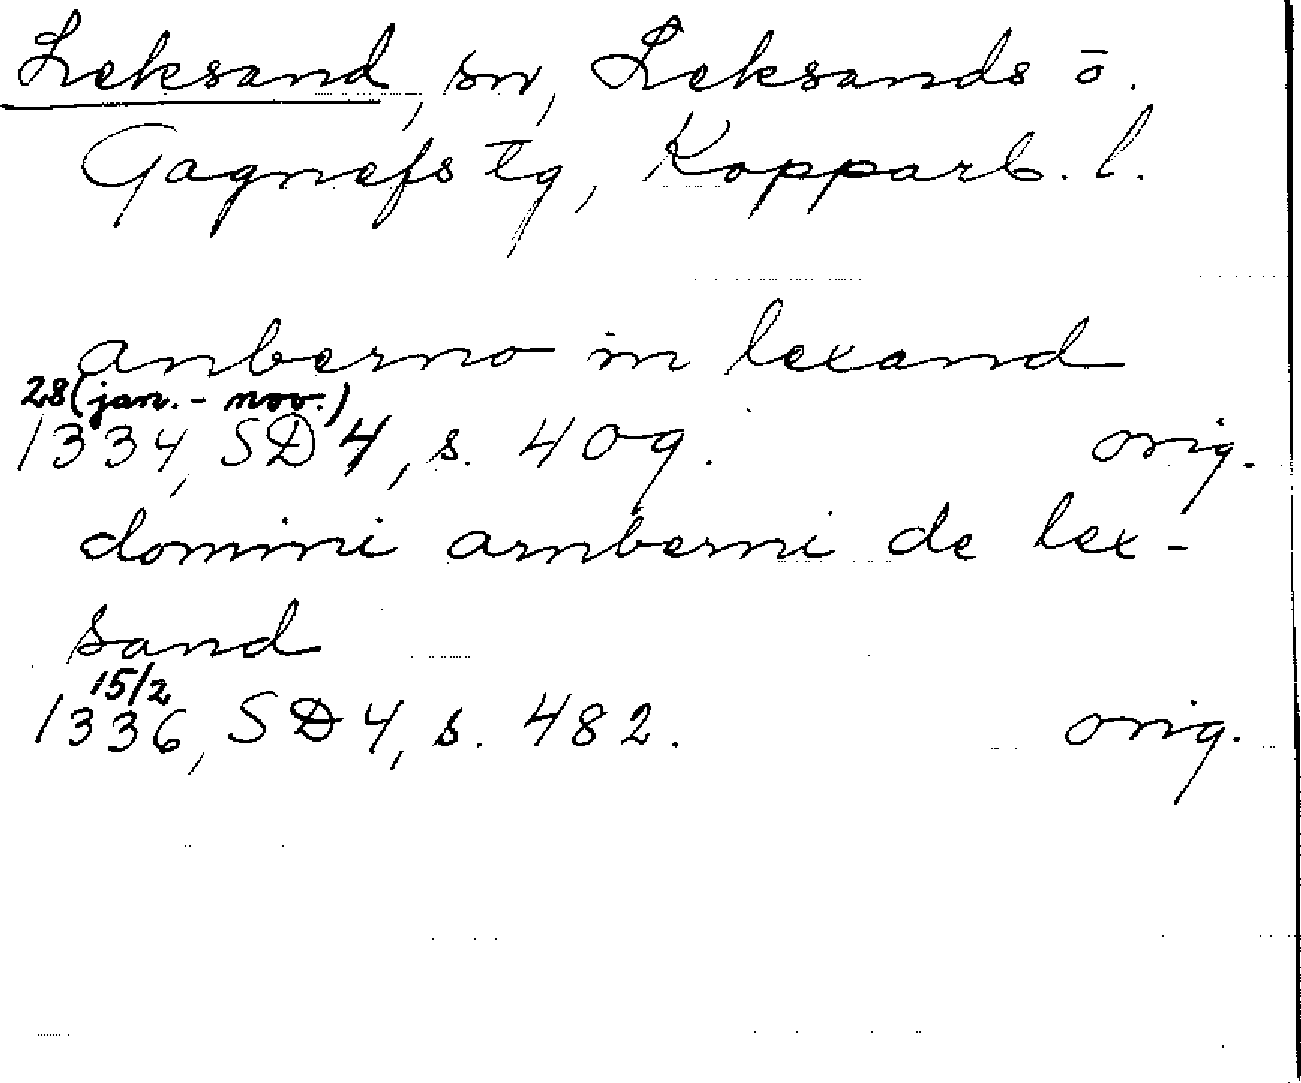 Leksand, sn, Leksands o.
Gagnefs tg, Kopparb. l.
anberno in lexand
28 (jan. - nov.)
1334, SD 4, s. 409. orig.
domini arnberni de lex-
sand
15/2
1336, SD 4, s. 482. orig.